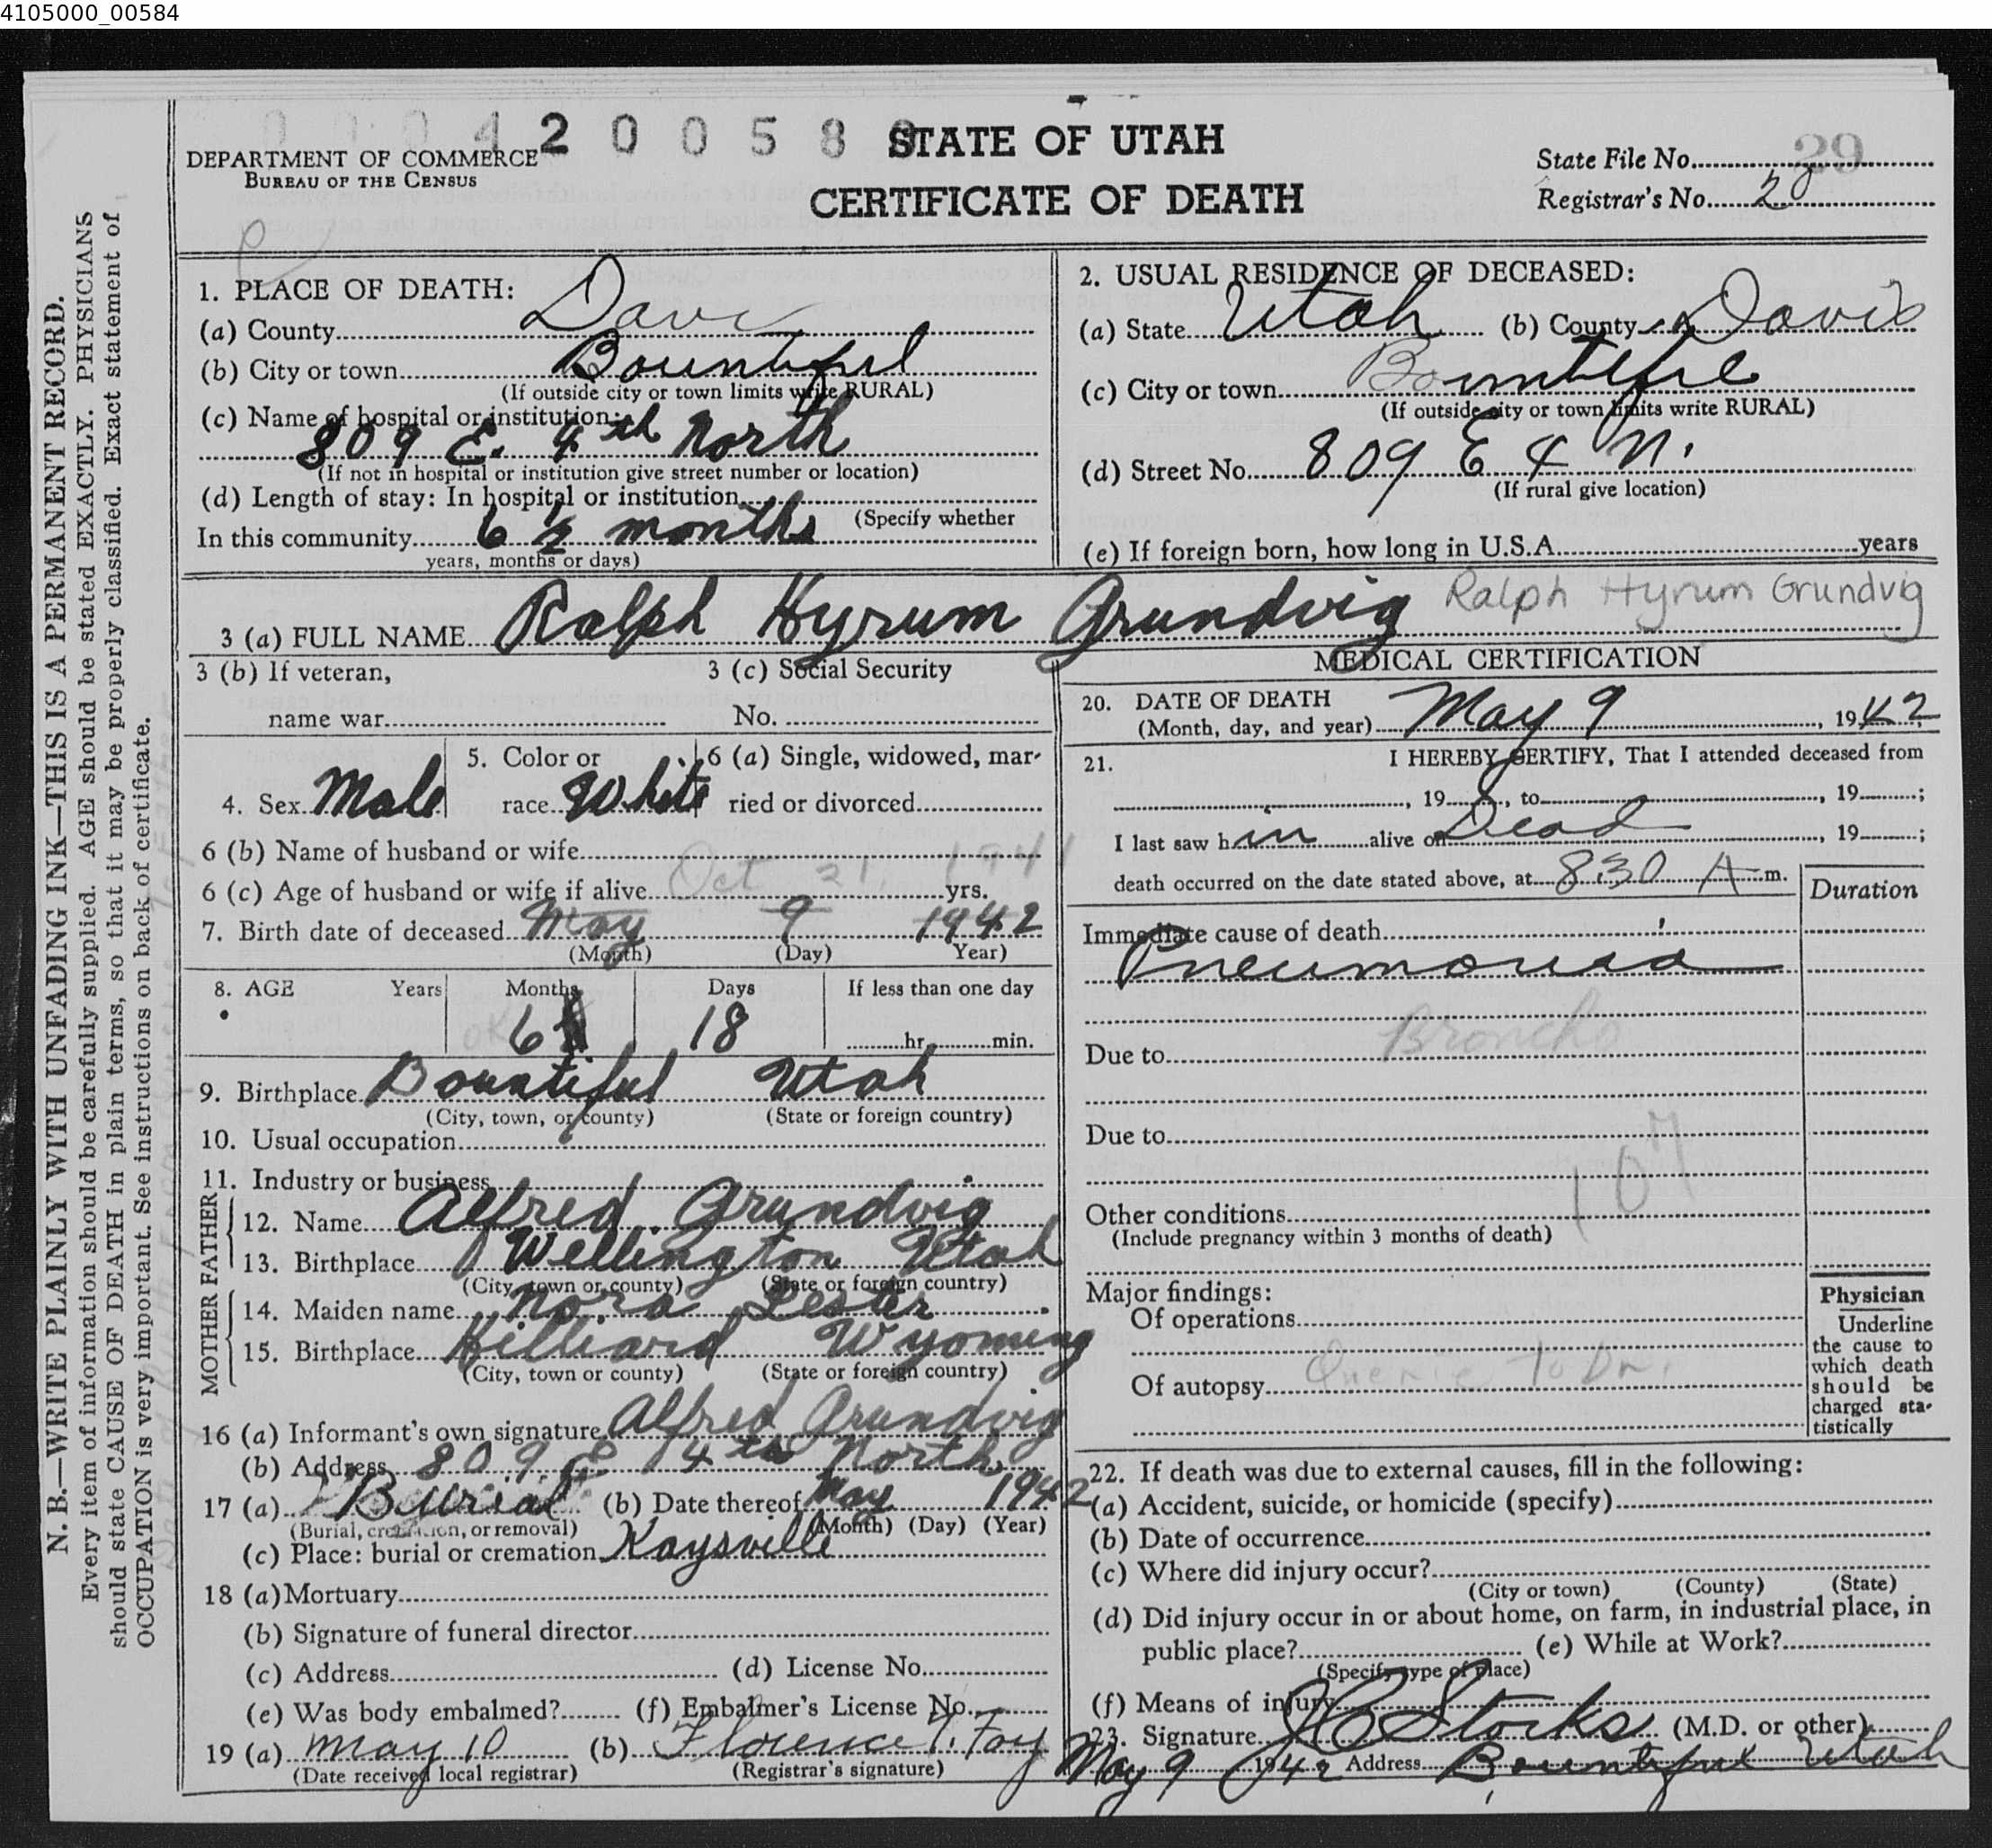 4105000_00584
0 0 0 4 2 0 0 5 8
STATE OF UTAH
CERTIFICATE OF DEATH
DEPARTMENT OF COMMERCE
BUREAU OF THE CENSUS
State File No. 29
Registrar's No. 28
N. B.—WRITE PLAINLY WITH UNFADING INK—THIS IS A PERMANENT RECORD.
Every item of information should be carefully supplied. AGE should be stated EXACTLY. PHYSICIANS
should state CAUSE OF DEATH in plain terms, so that it may be properly classified. Exact statement of
OCCUPATION is very important. See instructions on back of certificate.
1. PLACE OF DEATH:
(a) County Davis
(b) City or town Bountiful
(If outside city or town limits write RURAL)
(c) Name of hospital or institution:
809 E. 4th North
(If not in hospital or institution give street number or location)
(d) Length of stay: In hospital or institution
(Specify whether
In this community 6 1/2 months
years, months or days)
2. USUAL RESIDENCE OF DECEASED:
(a) State Utah (b) County Davis
(c) City or town Bountiful
(If outside city or town limits write RURAL)
(d) Street No. 809 E 4 N.
(If rural give location)
(e) If foreign born, how long in U.S.A. years
3 (a) FULL NAME Ralph Hyrum Grundvig Ralph Hyrum Grundvig
3 (b) If veteran,
name war
3 (c) Social Security
No.
4. Sex Male
5. Color or
race White
6 (a) Single, widowed, mar-
ried or divorced
6 (b) Name of husband or wife
6 (c) Age of husband or wife if alive yrs.
Oct 21, 1941
7. Birth date of deceased May 9 1942
(Month) (Day) Year)
8. AGE Years Months Days If less than one day
ok 6 18 hr. min.
9. Birthplace Bountiful Utah
(City, town, or county) (State or foreign country)
10. Usual occupation
11. Industry or business
FATHER
12. Name Alfred Grundvig
13. Birthplace Wellington Utah
(City, town or county) (State or foreign country)
MOTHER
14. Maiden name Nora Lester
15. Birthplace Hilliard Wyoming
(City, town or county) (State or foreign country)
16 (a) Informant's own signature Alfred Grundvig
(b) Address 809 E 4th North
17 (a) Burial (b) Date thereof May 1942
(Burial, cremation, or removal) (Month) (Day) (Year)
(c) Place: burial or cremation Kaysville
18 (a) Mortuary
(b) Signature of funeral director
(c) Address (d) License No.
(e) Was body embalmed? (f) Embalmer's License No.
19 (a) May 10 (b) Florence Foy
(Date received local registrar) (Registrar's signature)
MEDICAL CERTIFICATION
20. DATE OF DEATH
(Month, day, and year) May 9, 1942
21. I HEREBY CERTIFY, That I attended deceased from
, 19 , to , 19 ;
I last saw him alive on Dead, 19 ;
death occurred on the date stated above, at 8:30 A m.
Duration
Immediate cause of death
Pneumonia
Broncho
Due to
Due to
107
Other conditions
(Include pregnancy within 3 months of death)
Major findings:
Of operations
Of autopsy Querie to Dr.
Physician
Underline
the cause to
which death
should be
charged sta-
tistically
22. If death was due to external causes, fill in the following:
(a) Accident, suicide, or homicide (specify)
(b) Date of occurrence
(c) Where did injury occur?
(City or town) (County) (State)
(d) Did injury occur in or about home, on farm, in industrial place, in
public place? (e) While at Work?
(Specify type of place)
(f) Means of injury
23. Signature J C Stocks (M.D. or other)
May 9 1942 Address Bountiful Utah